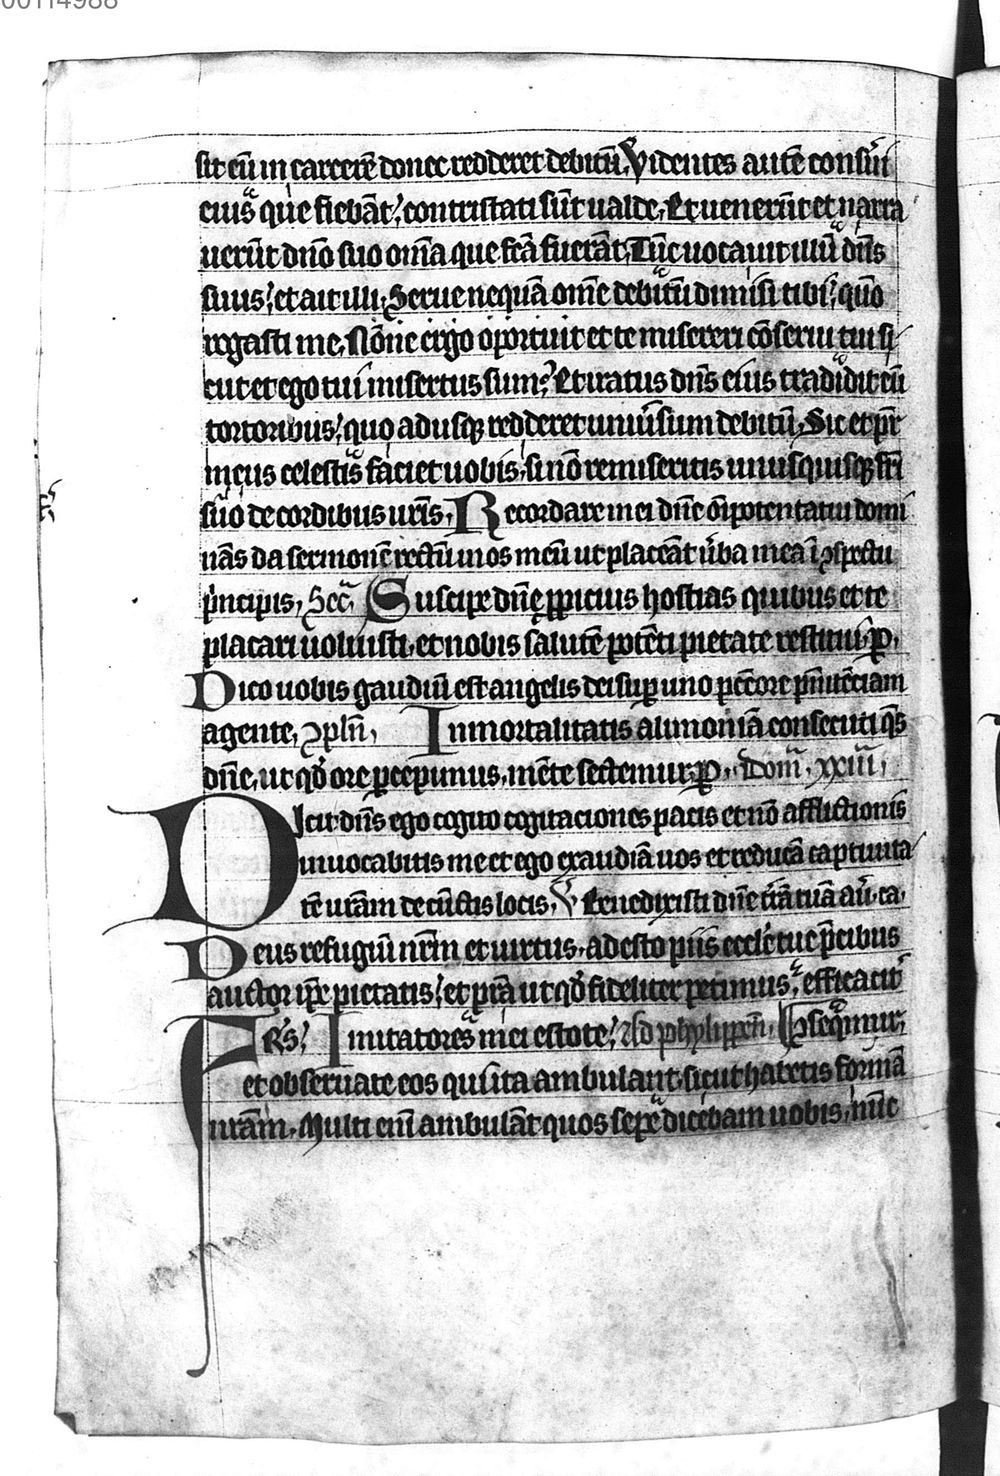 00114988
sit eū in carcerē donec redderet debitū. Videntes autē conserui
eius que fiebāt, contristati sūt ualde. Et uenerūt et narra
uerūt dn̄o suo om̄ia que fc̄a fuerāt. Tūc uocauit illū dn̄s
suus, et ait illi. Serue nequā om̄e debitū dimisi tibi, quō
rogasti me. Nōne ergo oportuit et te misereri cōserui tui si
cut et ego tui misertus sum? Et iratus dn̄s eius tradidit eū
tortoribus, quoadusq redderet uniūsum debitū. Sic et pr̄
meus celestis faciet uobis, si nō remiseritis unusquisq fr̄i
suo de cordibus ur̄is. Recordare mei dn̄e om̄ipotentatui domi
nās da sermonē rectū in os meū ut placeāt ūba mea ī ꝯspectu
pͥncipis. Secͬ. Suscipe dn̄e ꝓpicius hostias quibus et te
placari uoluisti, et nobis salutē potēti pietate restitui. p.
Dico uobis gaudiū est angelis dei suꝑ uno pccͨore pn̄itēciam
agente. ꝯpln̄. Inmortalitatis alimoniā consecuti qͦs
dn̄e, ut qd̄ ore ꝑcepimus, mēte sectemur. p. Dom̄. xxiii.
Dicit dn̄s ego cogito cogitaciones pacis et nō afflictionis
inuocabitis me et ego exaudiā uos et reducā captiuita
tē ur̄am de cūctis locis. V Benedixisti dn̄e tr̄ā tuā au. ca.
Deus refugiū nr̄m et uirtus, adesto piis eccl̄e tue pͥcibus
auctor ip̄e pietatis, et pͬa ut qd̄ fideliter petimus, efficacit͛
Fr̄s. Imitatores mei estote, Ad phylippen̄. ꝯsequimur,
et obseruate eos qui ita ambulant, sicut habetis formā
nr̄am. Multi eni ambulāt quos sepe dicebam uobis, nūc